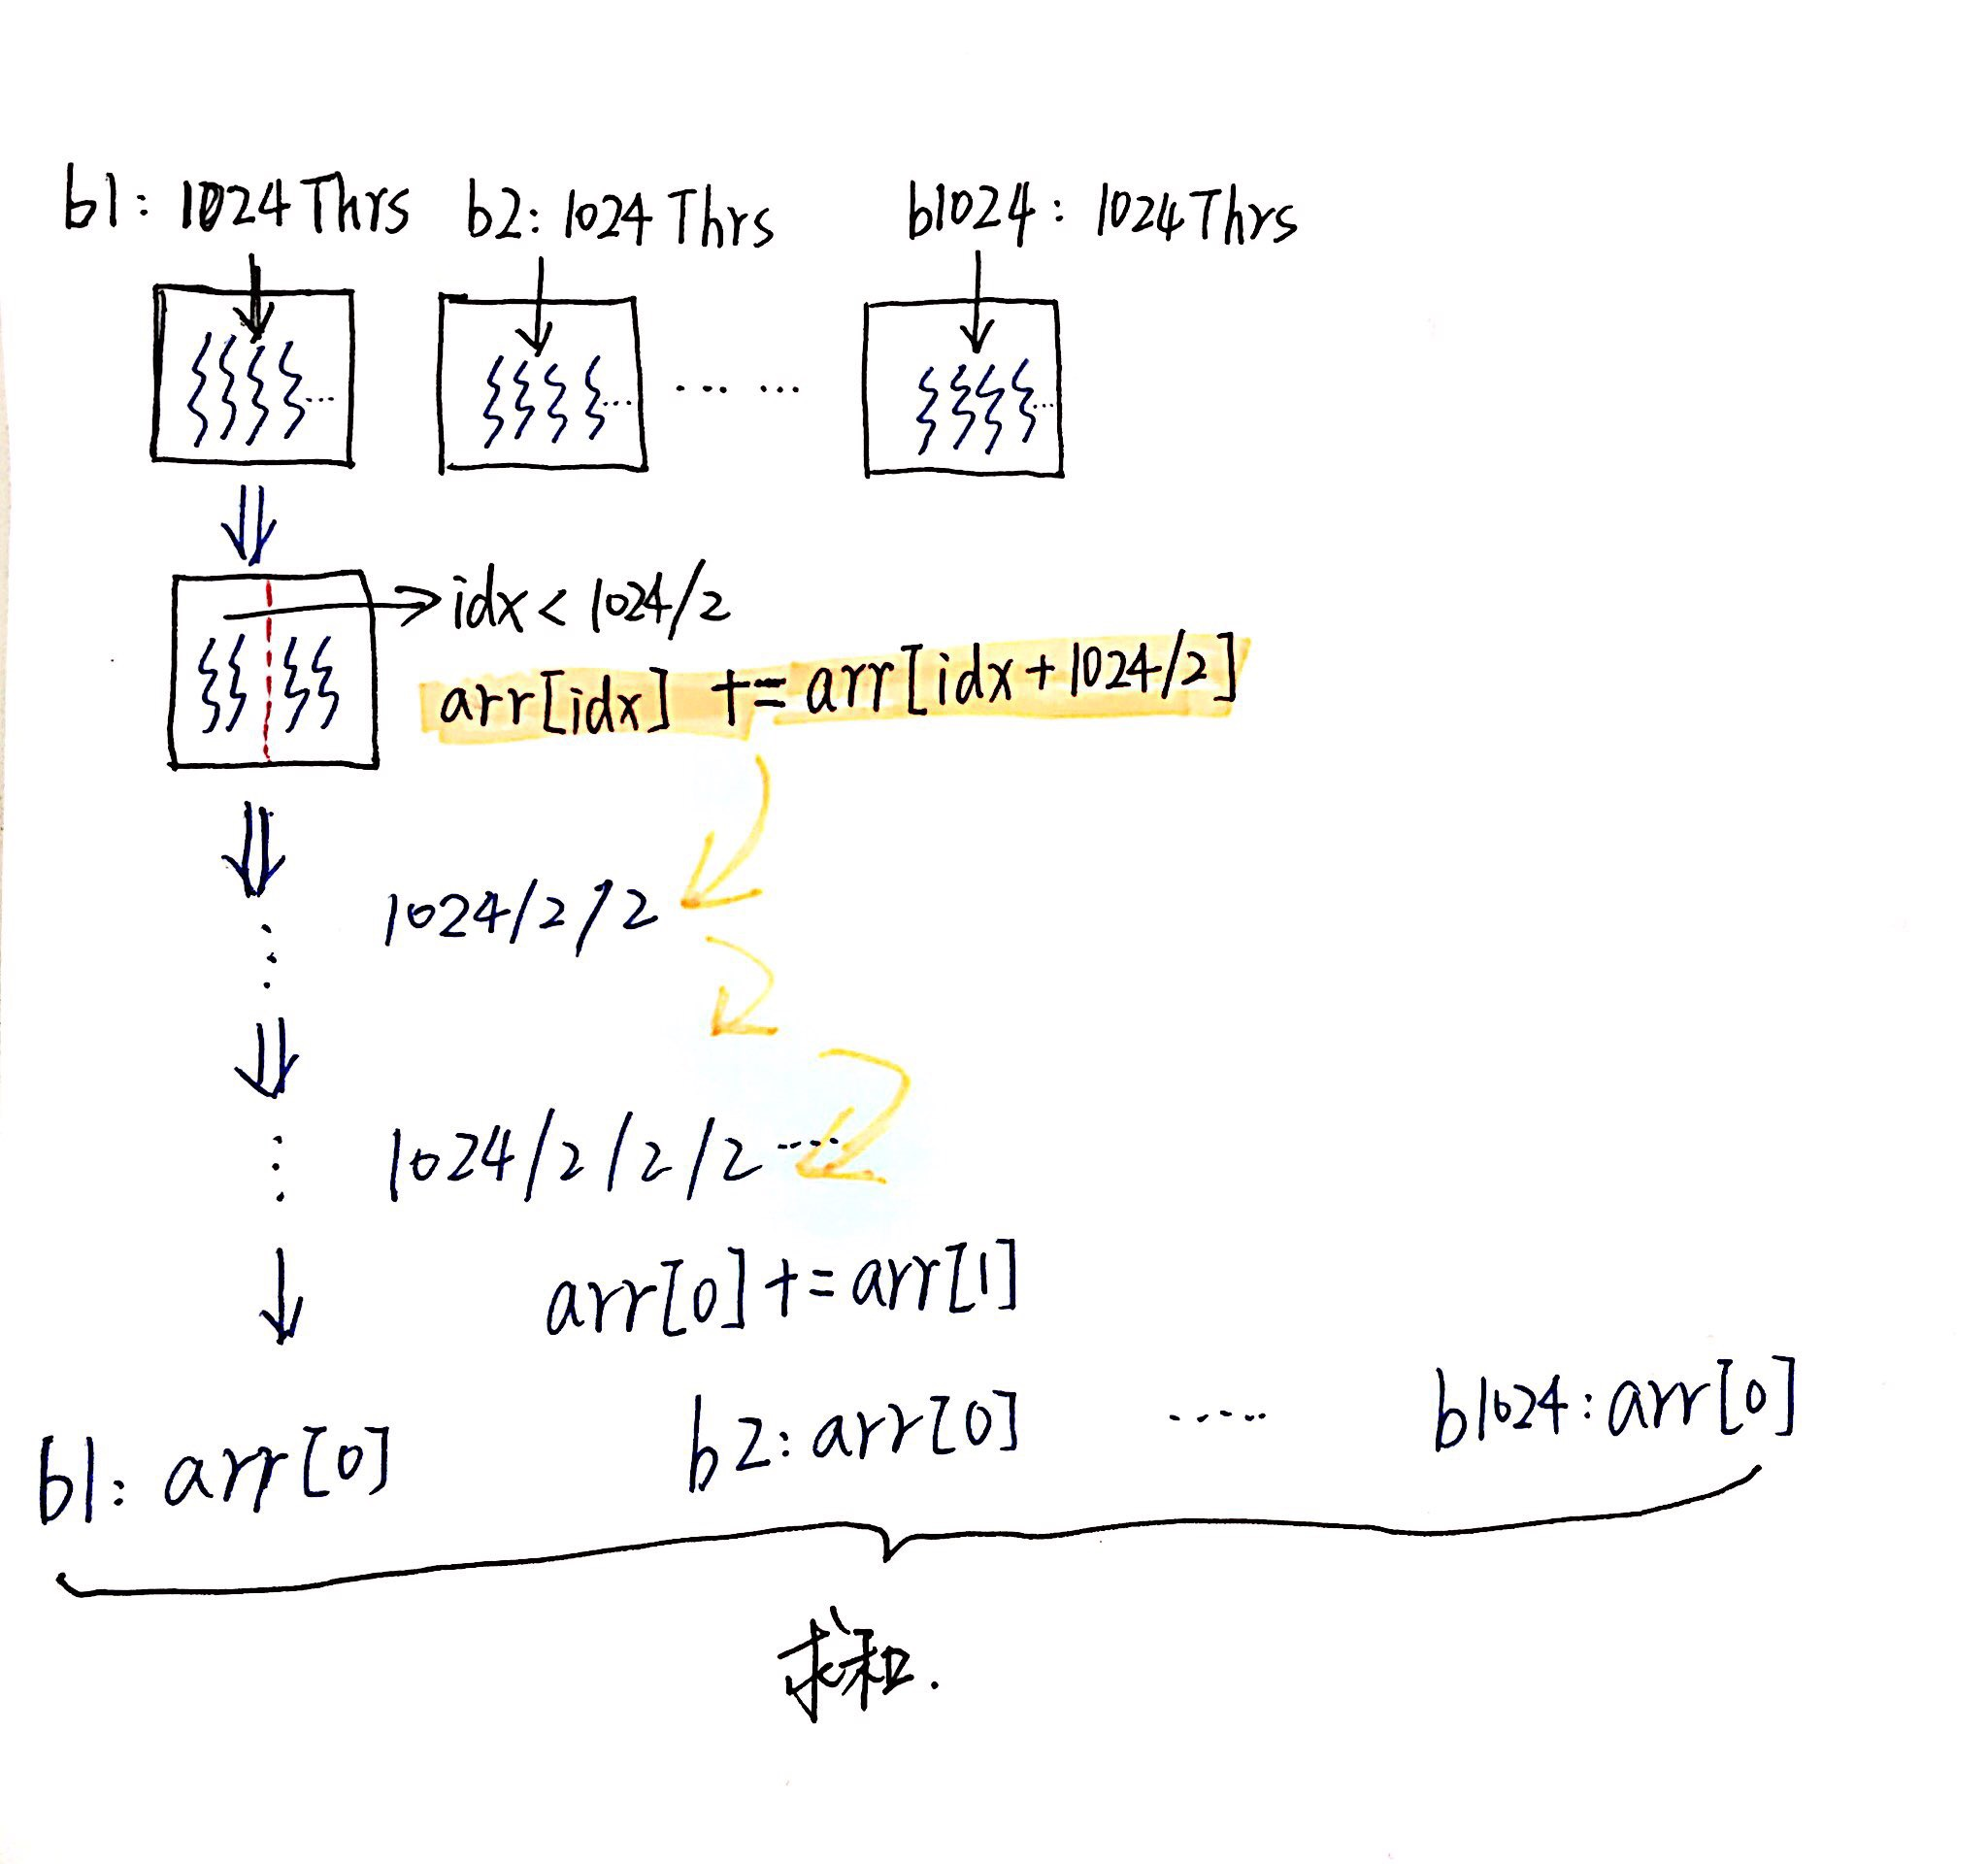 b1: 1024 Thrs b2: 1024 Thrs b1024: 1024 Thrs
... ... ... ... ...
idx < 1024/2
arr[idx] += arr[idx+1024/2]
1024/2/2
1024/2/2/2 ....
arr[0] += arr[1]
b1: arr[0] b2: arr[0] ..... b1024: arr[0]
求和.